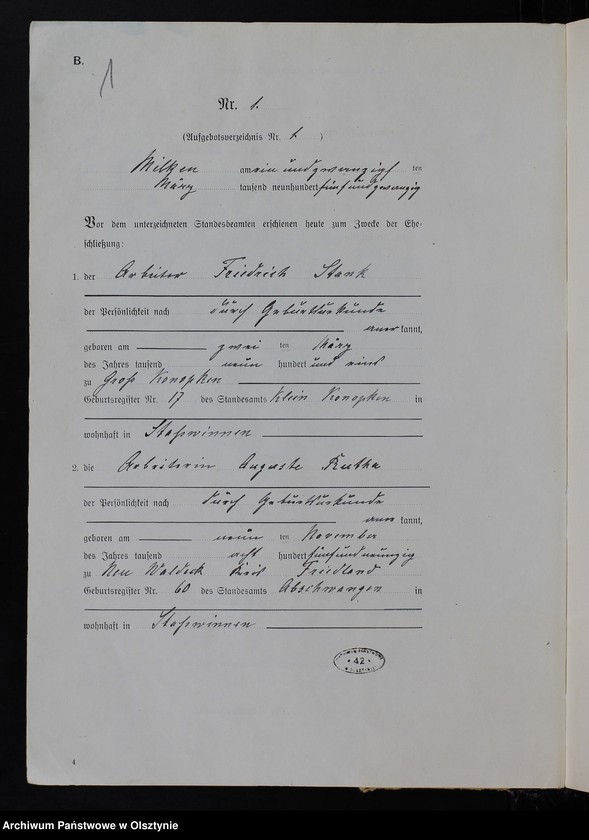 B.
1
Nr. 1.
(Aufgebotsverzeichnis Nr. 1. )
Milken am ein und zwanzigsten
März tausend neunhundert fünf und zwanzig
Vor dem unterzeichneten Standesbeamten erschienen heute zum Zwecke der Ehe-
schließung:
1. der Arbeiter Friedrich Stank
der Persönlichkeit nach durch Geburtsurkunde
aner kannt,
geboren am zwei ten März
des Jahres tausend neun hundert und eins
zu Groß Konopken
Geburtsregister Nr. 17 des Standesamts Klein Konopken in
wohnhaft in Staßwinnen
2. die Arbeiterin Auguste Kutha
der Persönlichkeit nach durch Geburtsurkunde
aner kannt,
geboren am neun ten November
des Jahres tausend acht hundert fünf und neunzig
zu Neu Waldeck Kreis Friedland
Geburtsregister Nr. 60 des Standesamts Abschwangen in
wohnhaft in Staßwinnen
ARCHIWUM PAŃSTWOWE
* 42 *
W OLSZTYNIE
4
Archiwum Państwowe w Olsztynie